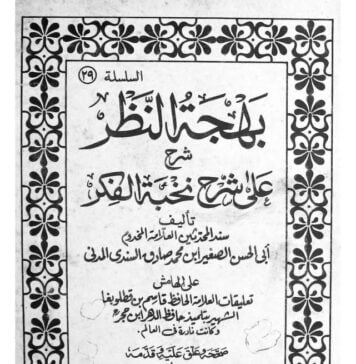 السلسلة (٢٩)
بهجة النَّظر
شرح
على شرح نخبة الفكر
تأليف
سند المحدثين العلامة المخدوم
أبي الحسن الصغير ابن محمد صادق السندي المدني
على الهامش
تعليقات العلامة الحافظ قاسم بن قطلوبغا
الشهير بتلميذ حافظ الدهر ابن حجر
وكانت نادرة في العالم.
صححه وعلق عليه وقدمه